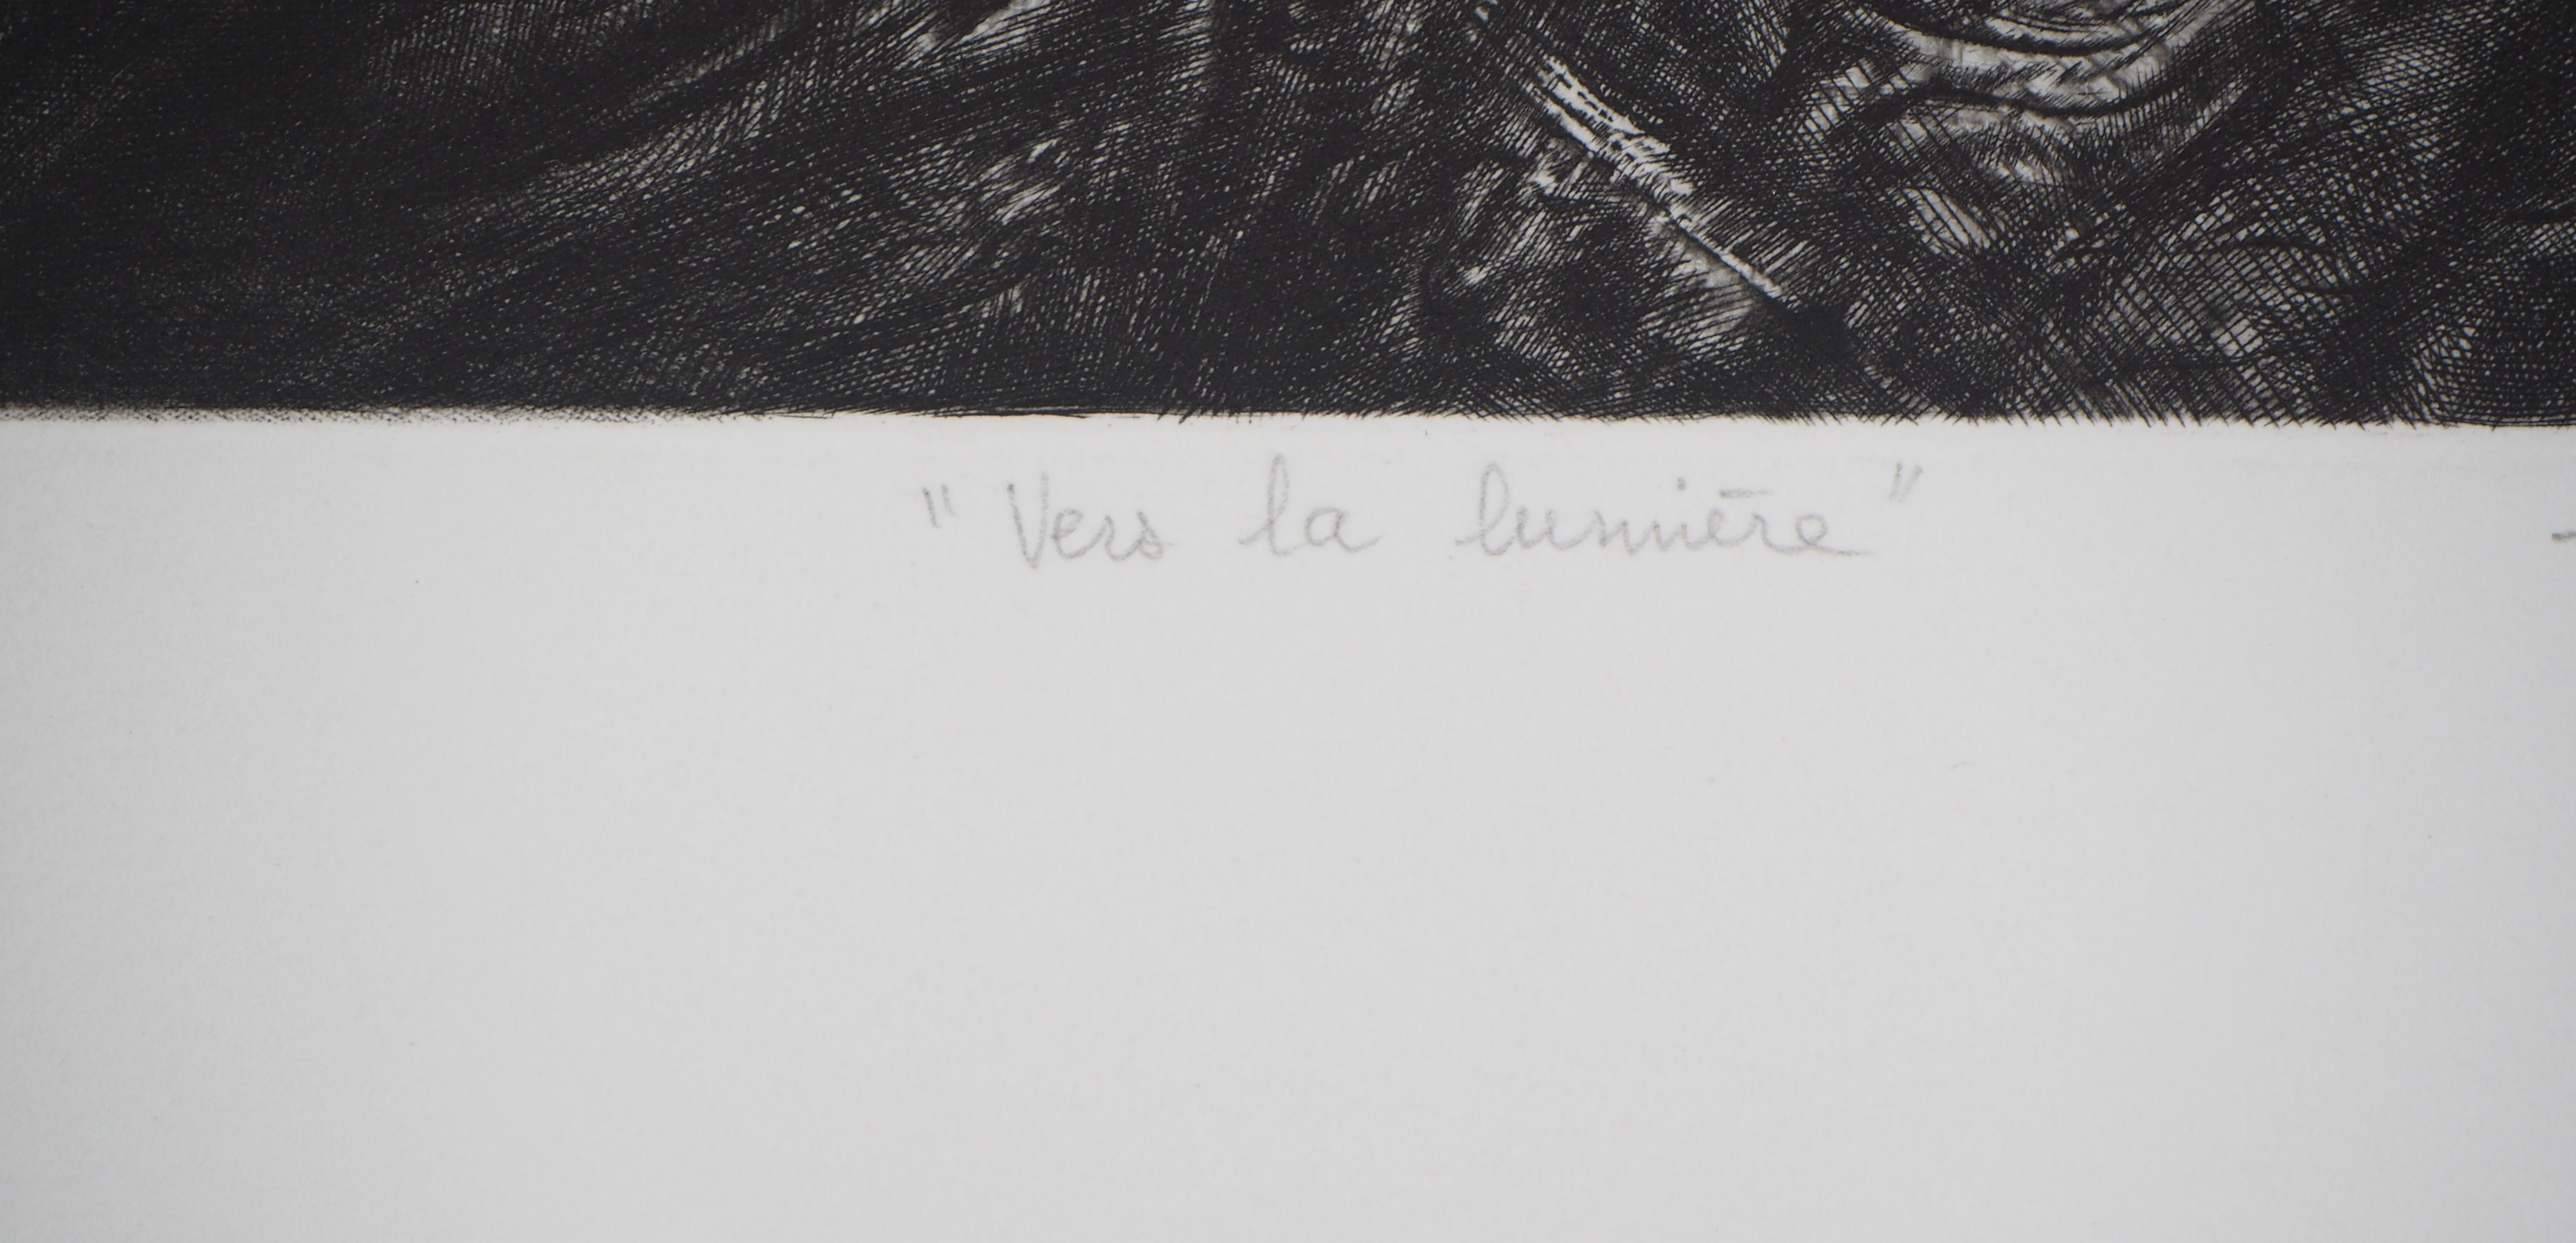 " Vers la lumière "